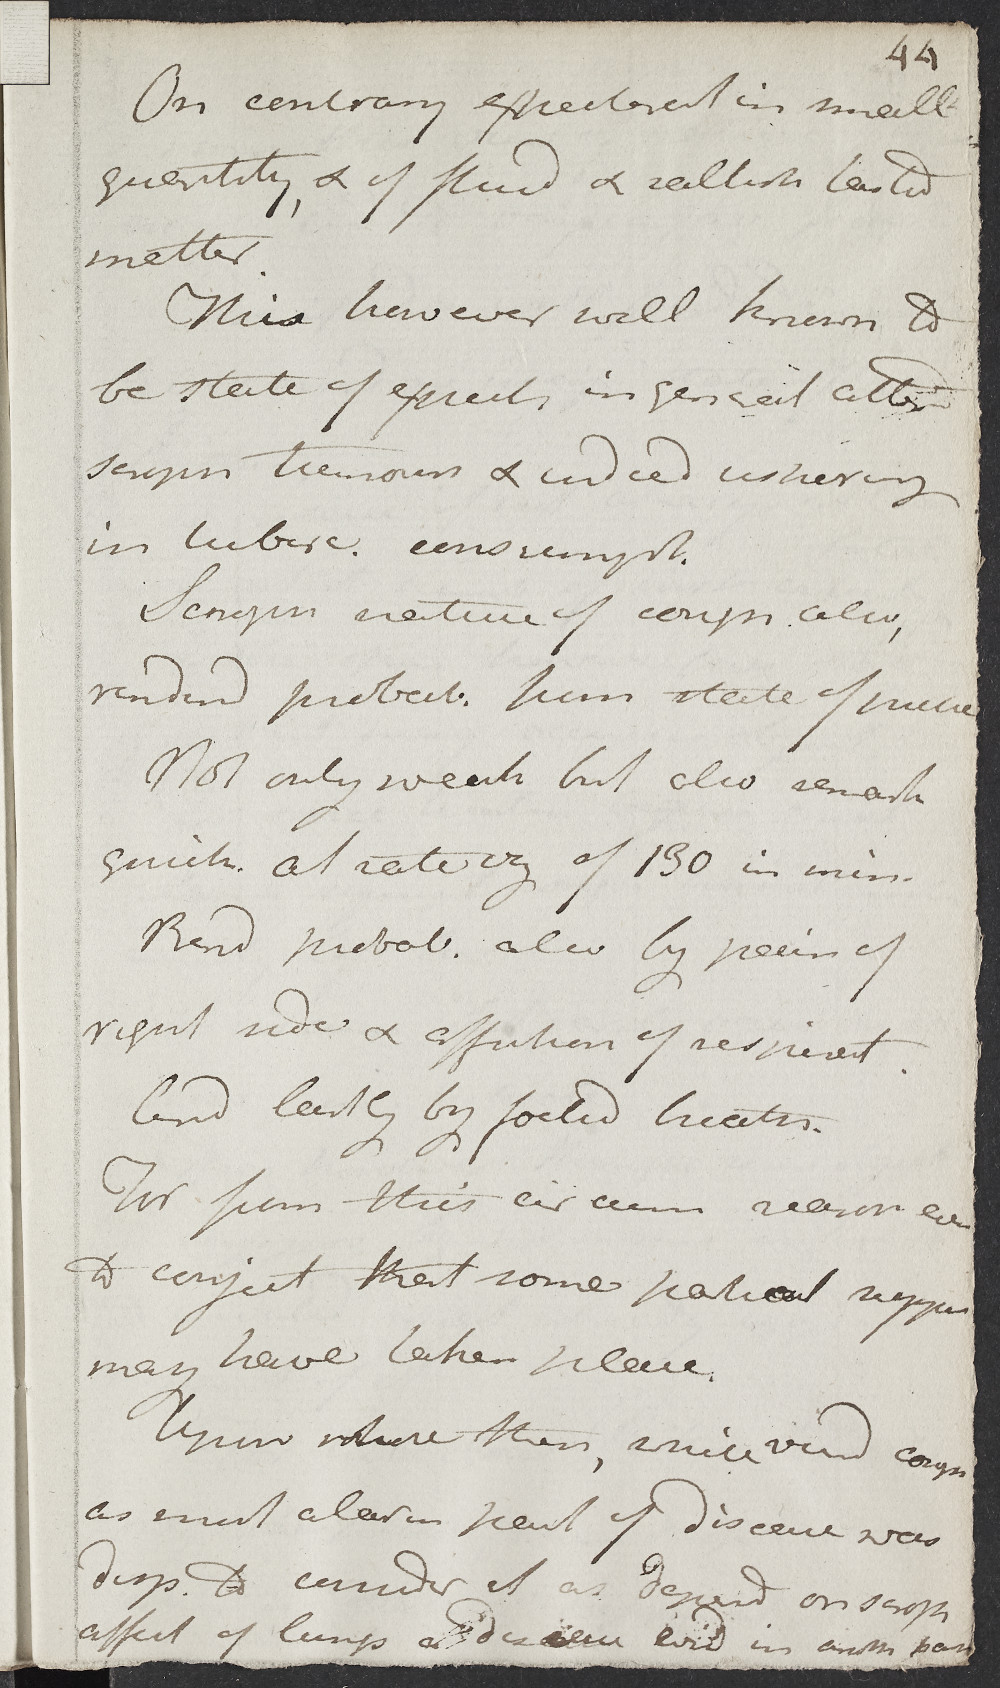 44
On contrary expectorat in small
quantity, & of fluid & saltish tasted
matter.
This however well known to
be state of expect. in general attend
scroph tumours & indeed ushering
in tuberc. consumpt.
Scroph nature of cough also,
rendend probab. from state of pulse
Not only weak but also remark
quick. at rate vz of 130 in min.
Rend probab. also by pain of
right side & affection of respirat.
And lastly by foetid breath.
For from this circum reason even
to conject that some partial suppur
may have taken place.
Upon whole then, while viewd cough
as most alarm part of disease was
disp. to consider it as depend on scroph
affect of lungs a disease evid in anoth part